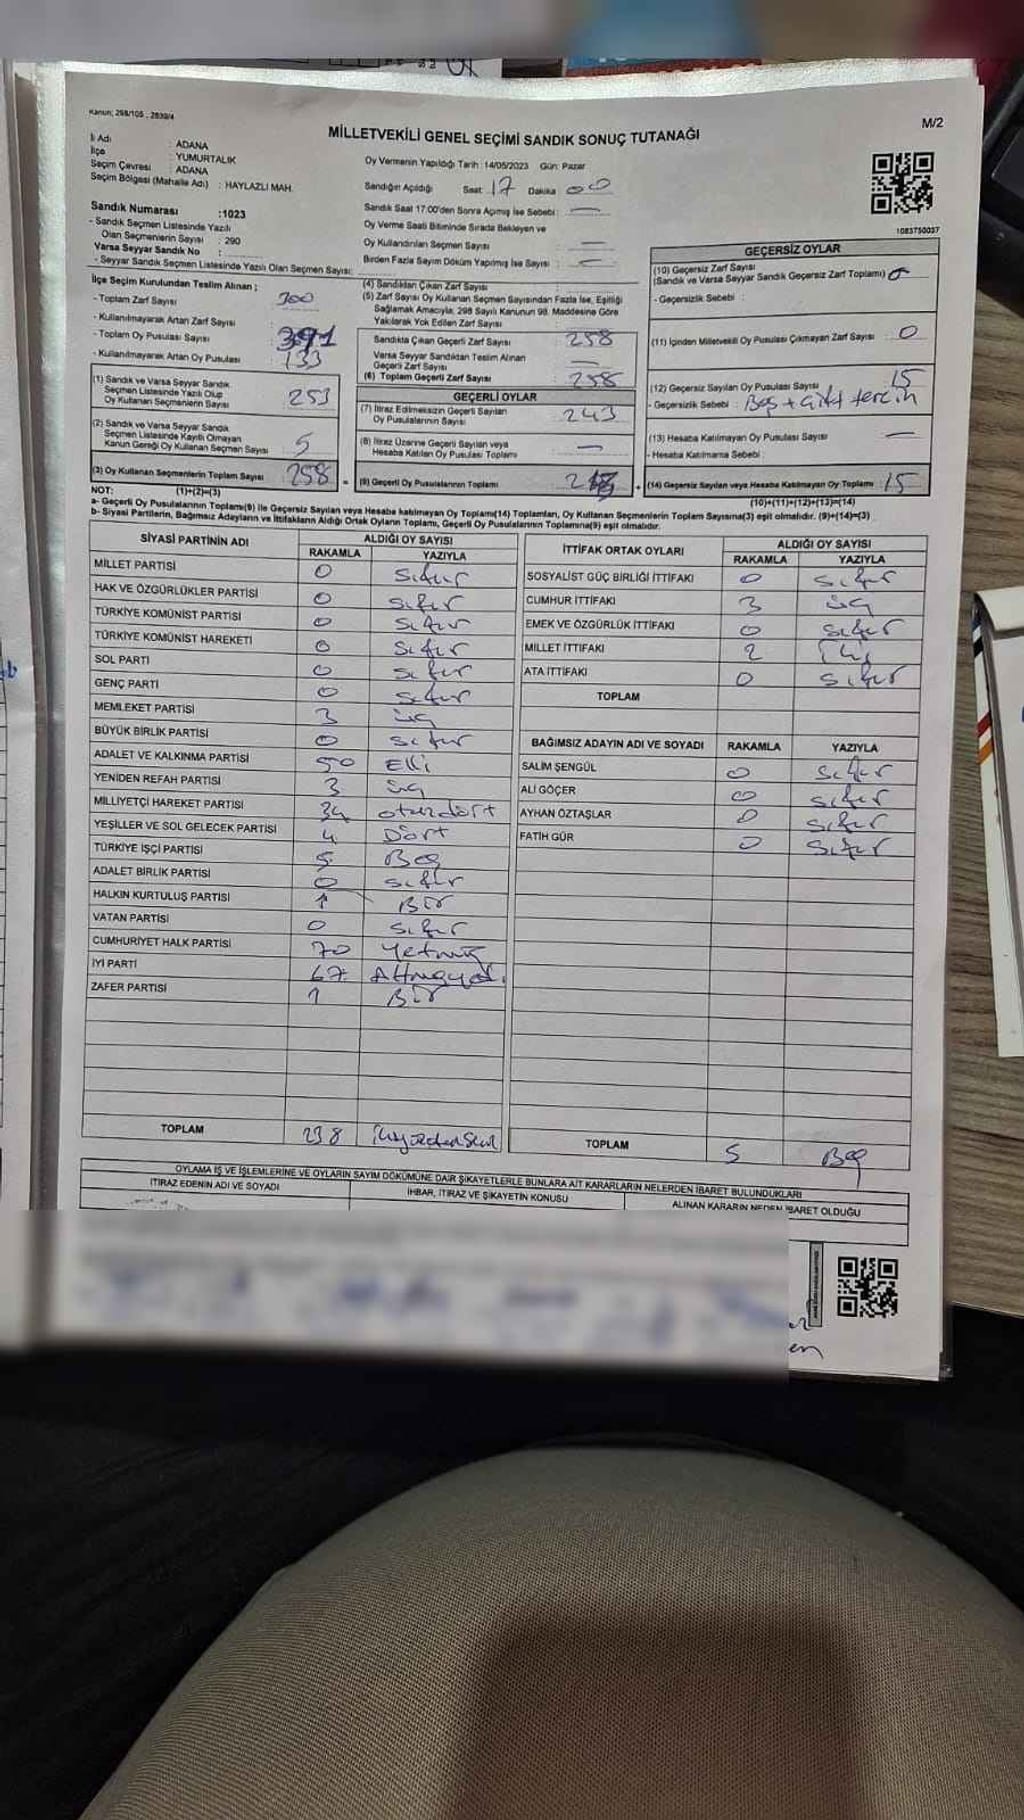 Kanun; 298/105 , 2839/4
M/2
MİLLETVEKİLİ GENEL SEÇİMİ SANDIK SONUÇ TUTANAĞI
İl Adı : ADANA
İlçe : YUMURTALIK
Seçim Çevresi : ADANA
Seçim Bölgesi (Mahalle Adı) : HAYLAZLI MAH.
Sandık Numarası :1023
- Sandık Seçmen Listesinde Yazılı
Olan Seçmenlerin Sayısı : 290
Varsa Seyyar Sandık No :
- Seyyar Sandık Seçmen Listesinde Yazılı Olan Seçmen Sayısı:
Oy Vermenin Yapıldığı Tarih :14/05/2023 Gün: Pazar
Sandığın Açıldığı Saat 17 Dakika 00
Sandık Saat 17:00'den Sonra Açılmış İse Sebebi : —
Oy Verme Saati Bitiminde Sırada Bekleyen ve
Oy Kullandırılan Seçmen Sayısı —
Birden Fazla Sayım Döküm Yapılmış İse Sayısı : —
1083750037
İlçe Seçim Kurulundan Teslim Alınan ;
- Toplam Zarf Sayısı : 300
- Kullanılmayarak Artan Zarf Sayısı :
- Toplam Oy Pusulası Sayısı : 391
- Kullanılmayarak Artan Oy Pusulası : 133
(1) Sandık ve Varsa Seyyar Sandık
Seçmen Listesinde Yazılı Olup
Oy Kullanan Seçmenlerin Sayısı : 253
(2) Sandık ve Varsa Seyyar Sandık
Seçmen Listesinde Kayıtlı Olmayan
Kanun Gereği Oy Kullanan Seçmen Sayısı : 5
(3) Oy Kullanan Seçmenlerin Toplam Sayısı 258
(1)+(2)=(3)
(4) Sandıktan Çıkan Zarf Sayısı :
(5) Zarf Sayısı Oy Kullanan Seçmen Sayısından Fazla İse, Eşitliği
Sağlamak Amacıyla, 298 Sayılı Kanunun 98. Maddesine Göre
Yakılarak Yok Edilen Zarf Sayısı :
Sandıkta Çıkan Geçerli Zarf Sayısı : 258
Varsa Seyyar Sandıktan Teslim Alınan
Geçerli Zarf Sayısı —
(6) Toplam Geçerli Zarf Sayısı 258
GEÇERLİ OYLAR
(7) İtiraz Edilmeksizin Geçerli Sayılan
Oy Pusulalarının Sayısı : 243
(8) İtiraz Üzerine Geçerli Sayılan veya
Hesaba Katılan Oy Pusulaları Toplamı : —
(9) Geçerli Oy Pusulalarının Toplamı
GEÇERSİZ OYLAR
(10) Geçersiz Zarf Sayısı
(Sandık ve Varsa Seyyar Sandık Geçersiz Zarf Toplamı) : 0
- Geçersizlik Sebebi :
(11) İçinden Milletvekili Oy Pusulası Çıkmayan Zarf Sayısı : 0
(12) Geçersiz Sayılan Oy Pusulası Sayısı : 15
- Geçersizlik Sebebi : Boş + Çift tercih
(13) Hesaba Katılmayan Oy Pusulası Sayısı : —
- Hesaba Katılmama Sebebi :
(14) Geçersiz Sayılan veya Hesaba Katılmayan Oy Toplamı 15
(10)+(11)+(12)+(13)=(14)
NOT:
a- Geçerli Oy Pusulalarının Toplamı(9) ile Geçersiz Sayılan veya Hesaba katılmayan Oy Toplamı(14) Toplamları, Oy Kullanan Seçmenlerin Toplam Sayısına(3) eşit olmalıdır. (9)+(14)=(3)
b- Siyasi Partilerin, Bağımsız Adayların ve İttifakların Aldığı Ortak Oyların Toplamı, Geçerli Oy Pusulalarının Toplamına(9) eşit olmalıdır.
SİYASİ PARTİNİN ADI ALDIĞI OY SAYISI
RAKAMLA YAZIYLA
MİLLET PARTİSİ 0 Sıfır
HAK VE ÖZGÜRLÜKLER PARTİSİ 0 Sıfır
TÜRKİYE KOMÜNİST PARTİSİ 0 Sıfır
TÜRKİYE KOMÜNİST HAREKETİ 0 Sıfır
SOL PARTİ 0 Sıfır
GENÇ PARTİ 0 Sıfır
MEMLEKET PARTİSİ 3 üç
BÜYÜK BİRLİK PARTİSİ 0 Sıfır
ADALET VE KALKINMA PARTİSİ 50 Elli
YENİDEN REFAH PARTİSİ 3 üç
MİLLİYETÇİ HAREKET PARTİSİ 34 otuzdört
YEŞİLLER VE SOL GELECEK PARTİSİ 4 Dört
TÜRKİYE İŞÇİ PARTİSİ 5 Beş
ADALET BİRLİK PARTİSİ 0 sıfır
HALKIN KURTULUŞ PARTİSİ 1 Bir
VATAN PARTİSİ 0 Sıfır
CUMHURİYET HALK PARTİSİ 70 Yetmiş
İYİ PARTİ 67 Altmışyedi
ZAFER PARTİSİ 1 Bir
TOPLAM 238
İTTİFAK ORTAK OYLARI ALDIĞI OY SAYISI
RAKAMLA YAZIYLA
SOSYALİST GÜÇ BİRLİĞİ İTTİFAKI 0 Sıfır
CUMHUR İTTİFAKI 3 üç
EMEK VE ÖZGÜRLÜK İTTİFAKI 0 Sıfır
MİLLET İTTİFAKI 2 İki
ATA İTTİFAKI 0 Sıfır
TOPLAM
BAĞIMSIZ ADAYIN ADI VE SOYADI RAKAMLA YAZIYLA
SALİM ŞENGÜL 0 Sıfır
ALİ GÖÇER 0 Sıfır
AYHAN ÖZTAŞLAR 0 Sıfır
FATİH GÜR 0 Sıfır
TOPLAM 5 Beş
OYLAMA İŞ VE İŞLEMLERİNE VE OYLARIN SAYIM DÖKÜMÜNE DAİR ŞİKAYETLERLE BUNLARA AİT KARARLARIN NELERDEN İBARET BULUNDUKLARI
İTİRAZ EDENİN ADI VE SOYADI İHBAR, İTİRAZ VE ŞİKAYETİN KONUSU ALINAN KARARIN NEDEN İBARET OLDUĞU